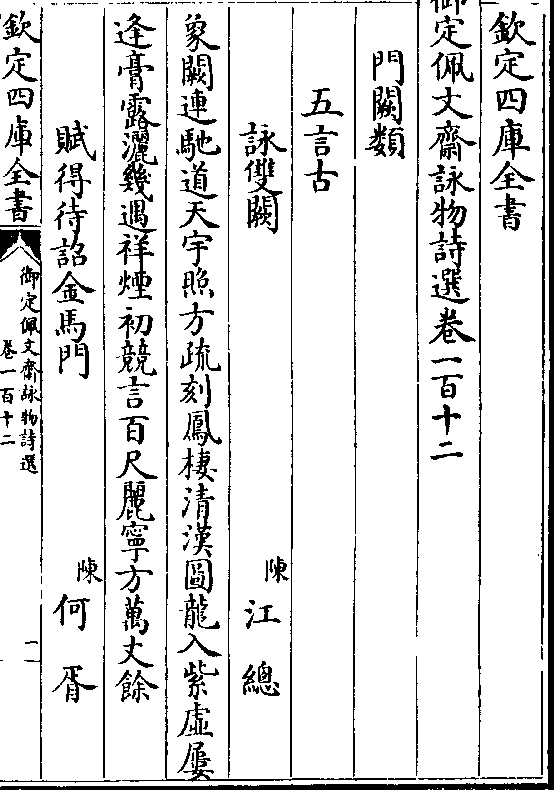 欽定四庫全書
御定佩文齋詠物詩選卷一百十二
門闕類
五言古
詠雙闕 陳 江總
象闕連馳道天宇照方疏刻鳳棲清漢圖龍入紫虛屢
逢膏露灑幾遇祥煙初競言百尺麗寧方萬丈餘
賦得待詔金馬門 陳 何胥
欽定四庫全書
御定佩文齋詠物詩選
卷一百十二
一